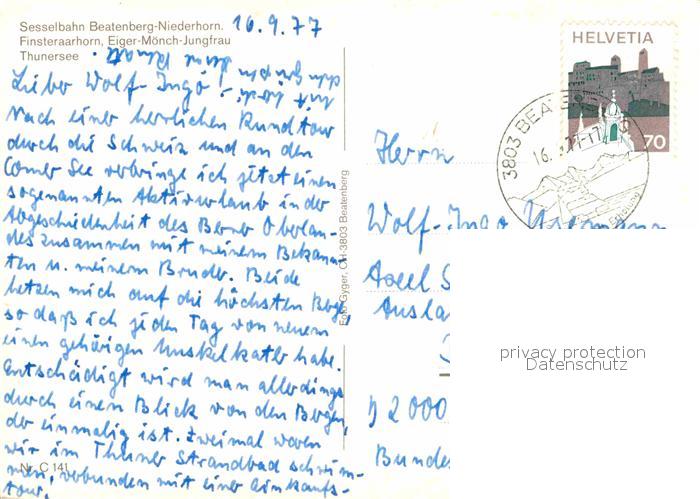 Sesselbahn Beatenberg-Niederhorn. 16.9.77
Finsteraarhorn, Eiger-Mönch-Jungfrau
Thunersee
Lieber Wolf-Ingo!
Nach einer herrlichen Rundtour
durch die Schweiz und an den
Comer See verbringe ich jetzt einen
sogenannten Aktivurlaub in der
Abgeschiedenheit des Berner Oberlan-
des zusammen mit meinem Bekann-
ten u. meinem Bruder. Beide
hetzen mich auf die höchsten Berge,
so daß ich jeden Tag von neuem
einen gehörigen Muskelkater habe.
Entschädigt wird man allerdings
durch einen Blick von den Bergen,
der einmalig ist. Zweimal waren
wir im Thuner Strandbad schwim-
men, verbunden mit einer Einkaufs-
tour.
Nr. C 141
Foto Gyger, CH-3803 Beatenberg
HELVETIA
70
3803 BEATENBERG
16.
Herrn
Wolf-Ingo
Axel S
Ausla
D 2000
Bunde
privacy protection
Datenschutz